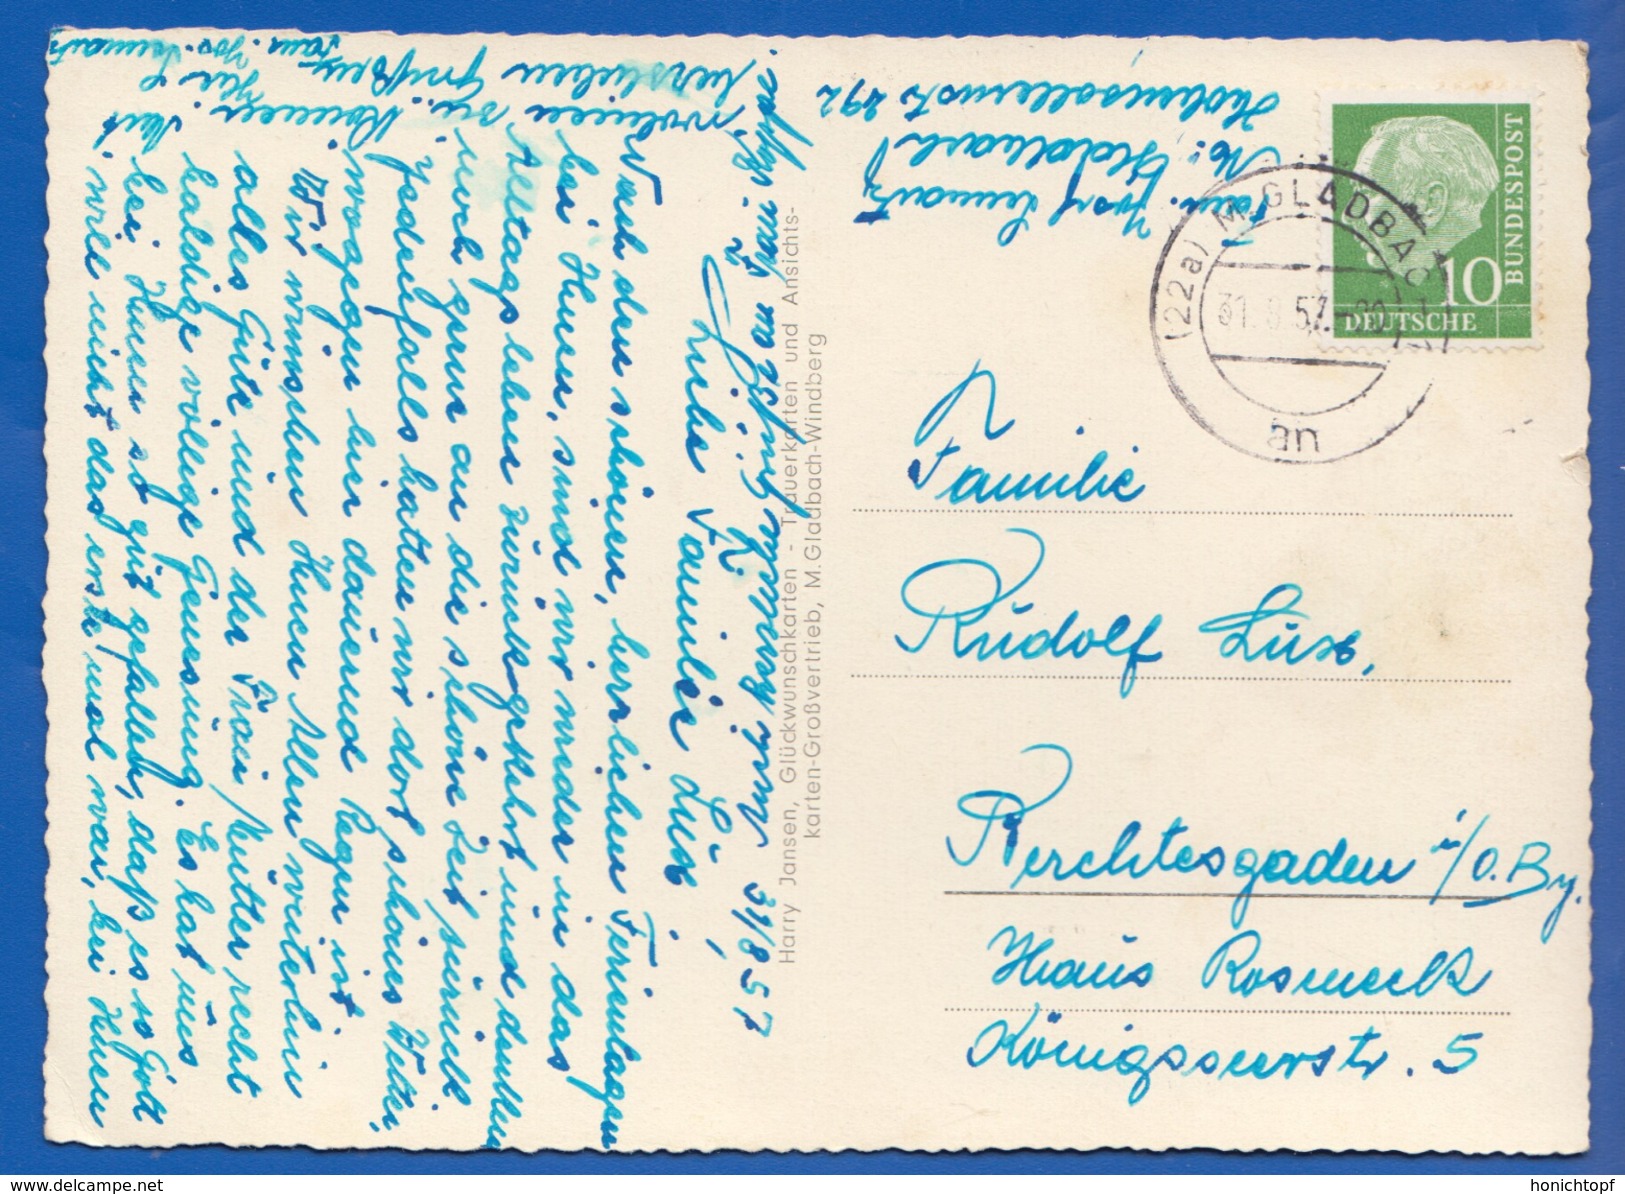 31/8 57
Liebe Familie Lüx!
Nach den schönen, herrlichen Ferientagen
bei Ihnen, sind wir wieder in das
Alltagsleben zurückgekehrt und denken
noch gerne an die schöne Zeit zurück
Jedenfalls hatten wir dort schönes Wetter,
wogegen hier dauernd Regen ist.
Wir wünschen Ihnen Allen weiterhin
alles Gute und der Frau Mutter recht
baldige völlige Genesung. Es hat uns
bei Ihnen so gut gefallen, daß es so Gott
will nicht das erste mal war, bei Ihnen
herzlichen Grüßen
Fam. Jos.
Harry Jansen, Glückwunschkarten - Trauerkarten und Ansichts-
karten-Großvertrieb, M.Gladbach-Windberg
Fam. Josef
M. Gladbach
Hohenzollernstr 492
(22a) M. GLADBACH
31.8.57.-
an
10
DEUTSCHE
BUNDESPOST
Familie
Rudolf Lüx,
Berchtesgaden i/O. By.
Haus Rosmeck
Königsseerstr. 5
www.delcampe.net
honichtopf